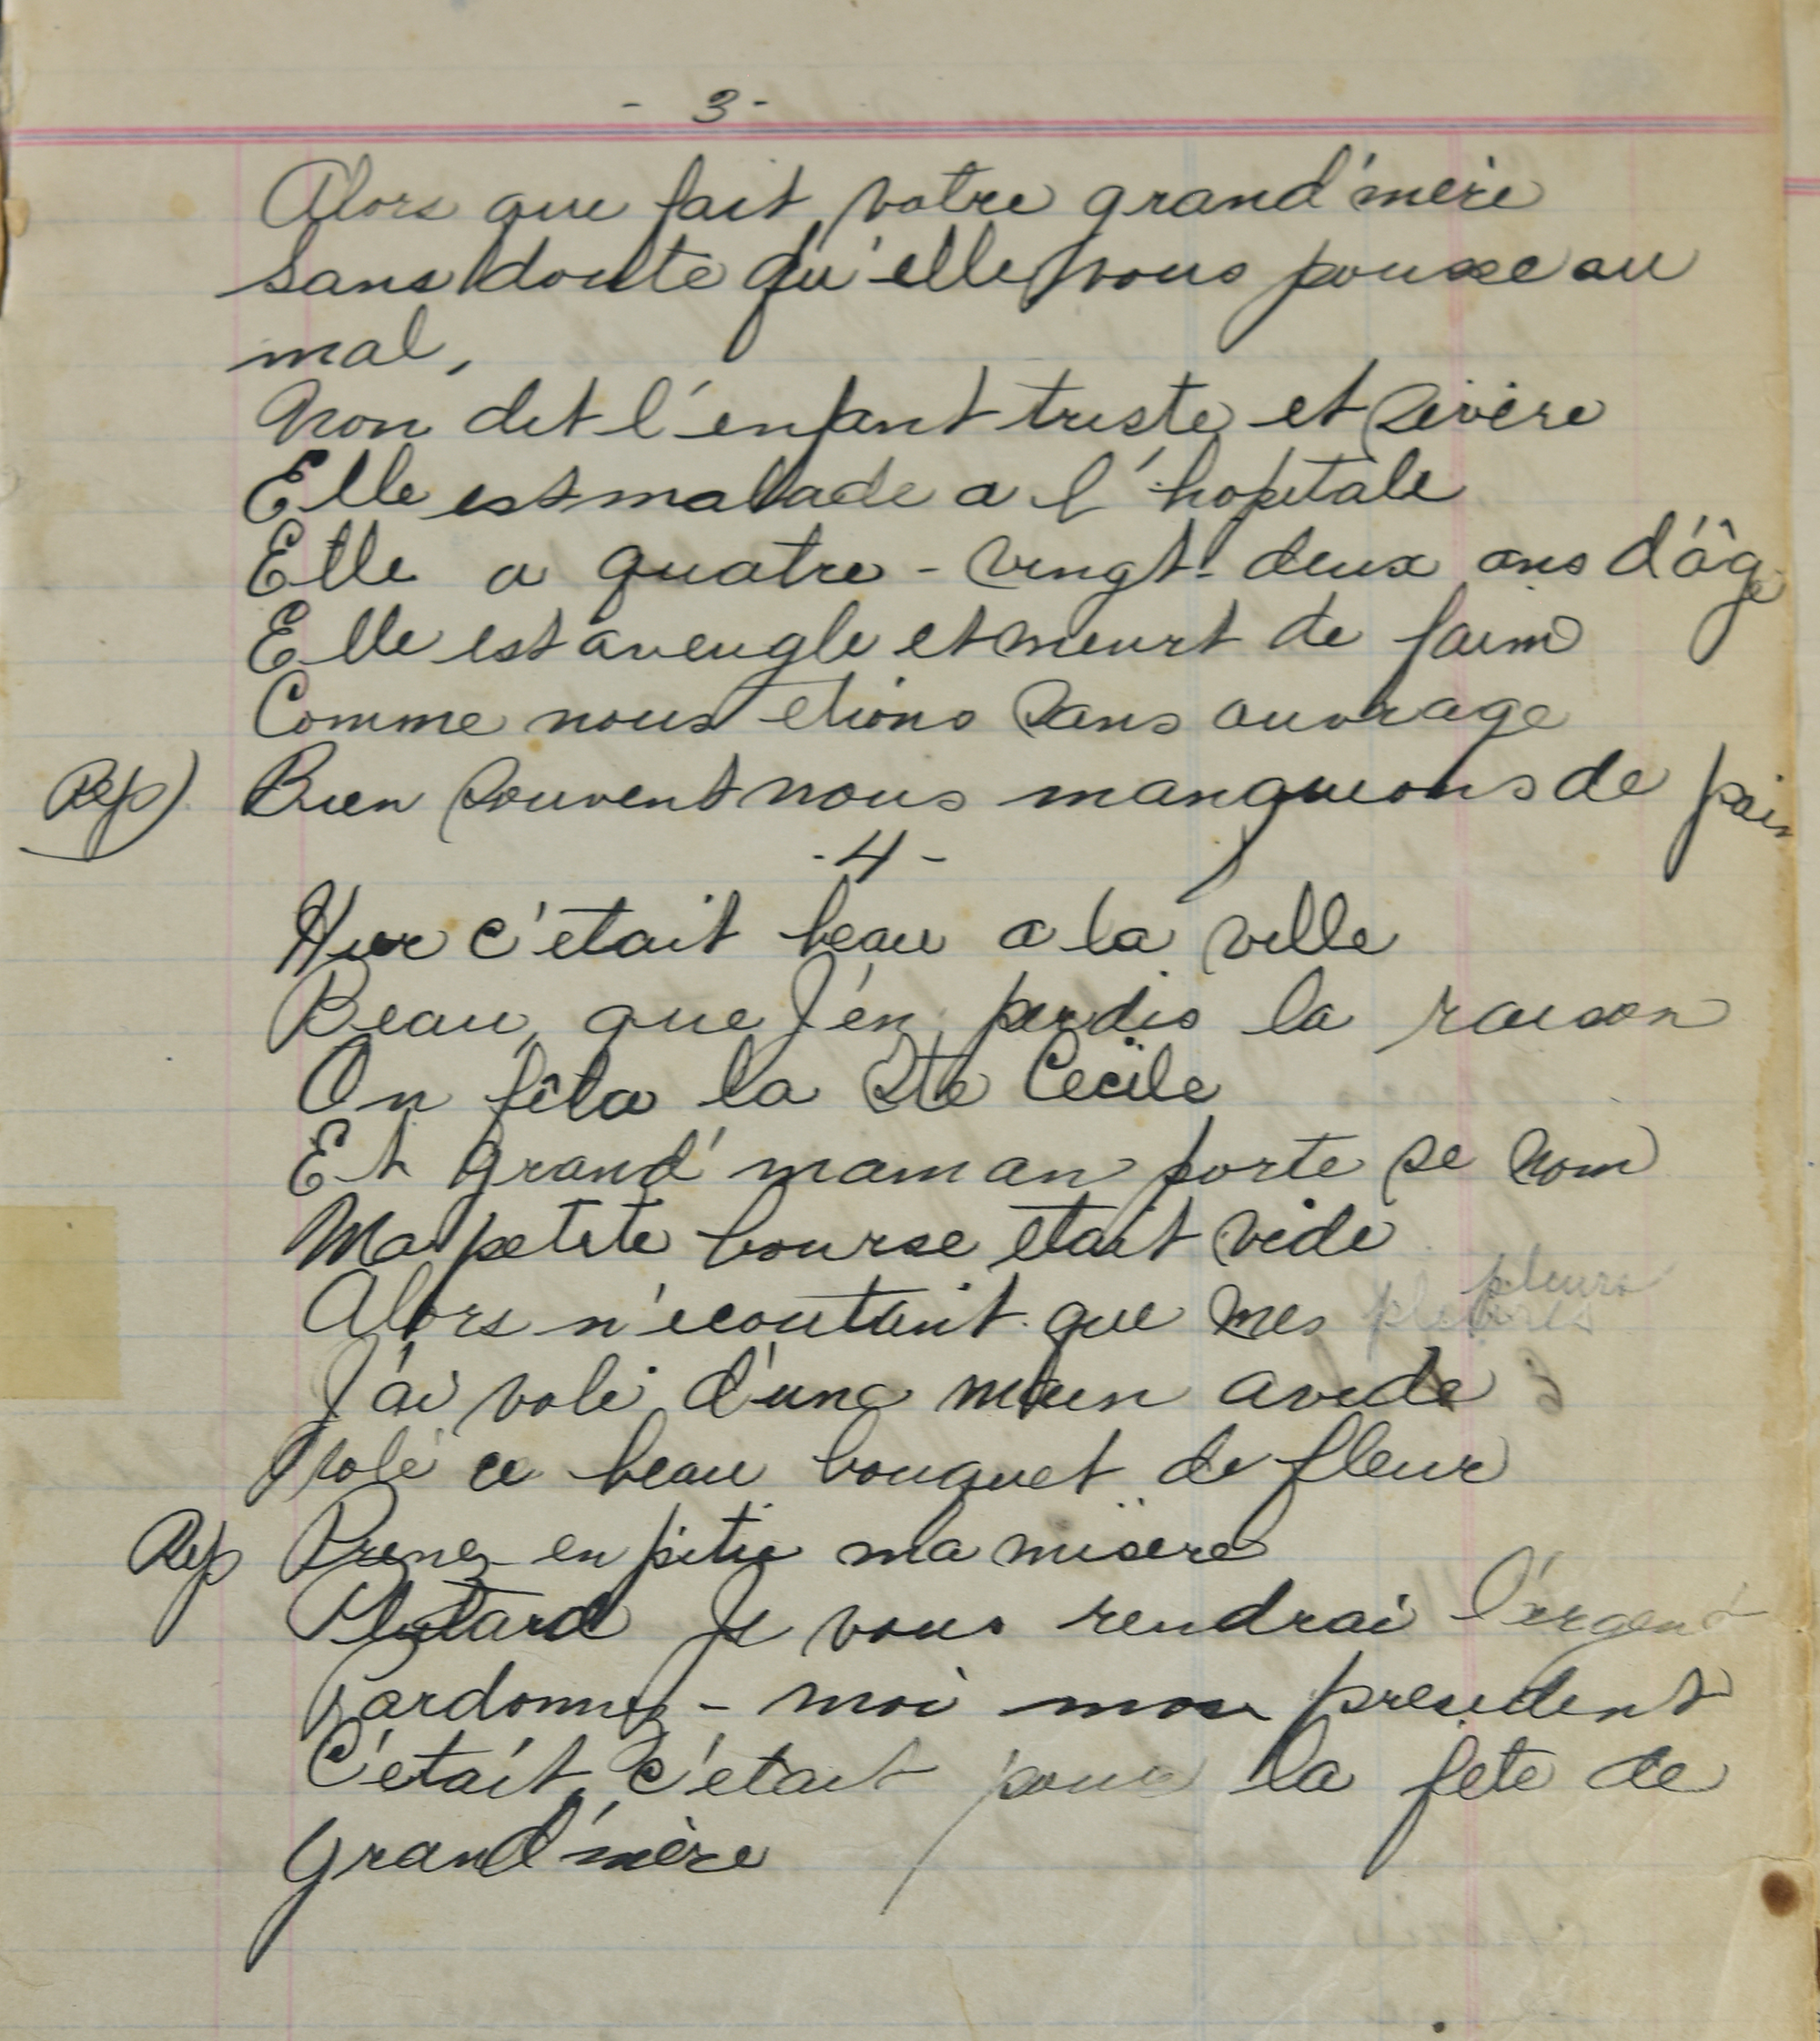 - 3 -
Alors que fait votre grand'mère
Sans doute qu'elle vous pousse au
mal,
Non dit l'enfant triste et sévère
Elle est malade a l'hopitale
Elle a quatre-vingt-deux ans d'âge
Elle est aveugle et meurt de faim
Comme nous etions sans ouvrage
Rep) Bien souvent nous manquions de pain
- 4 -
Hier c'était beau a la ville
Beau, que j'en perdis la raison
On fêta la Ste Cecile
Et grand'maman porte se nom
Ma petite bourse etait vide
pleurs
Alors n'ecoutant que mes
J'ai volé d'une main avide
Volé ce beau bouquet de fleur
Rep Prenez en pitie ma misère
Plutard je vous rendrai l'argent
Pardonnez-moi mon president
C'était, c'était pour la fete de
Grand'mère